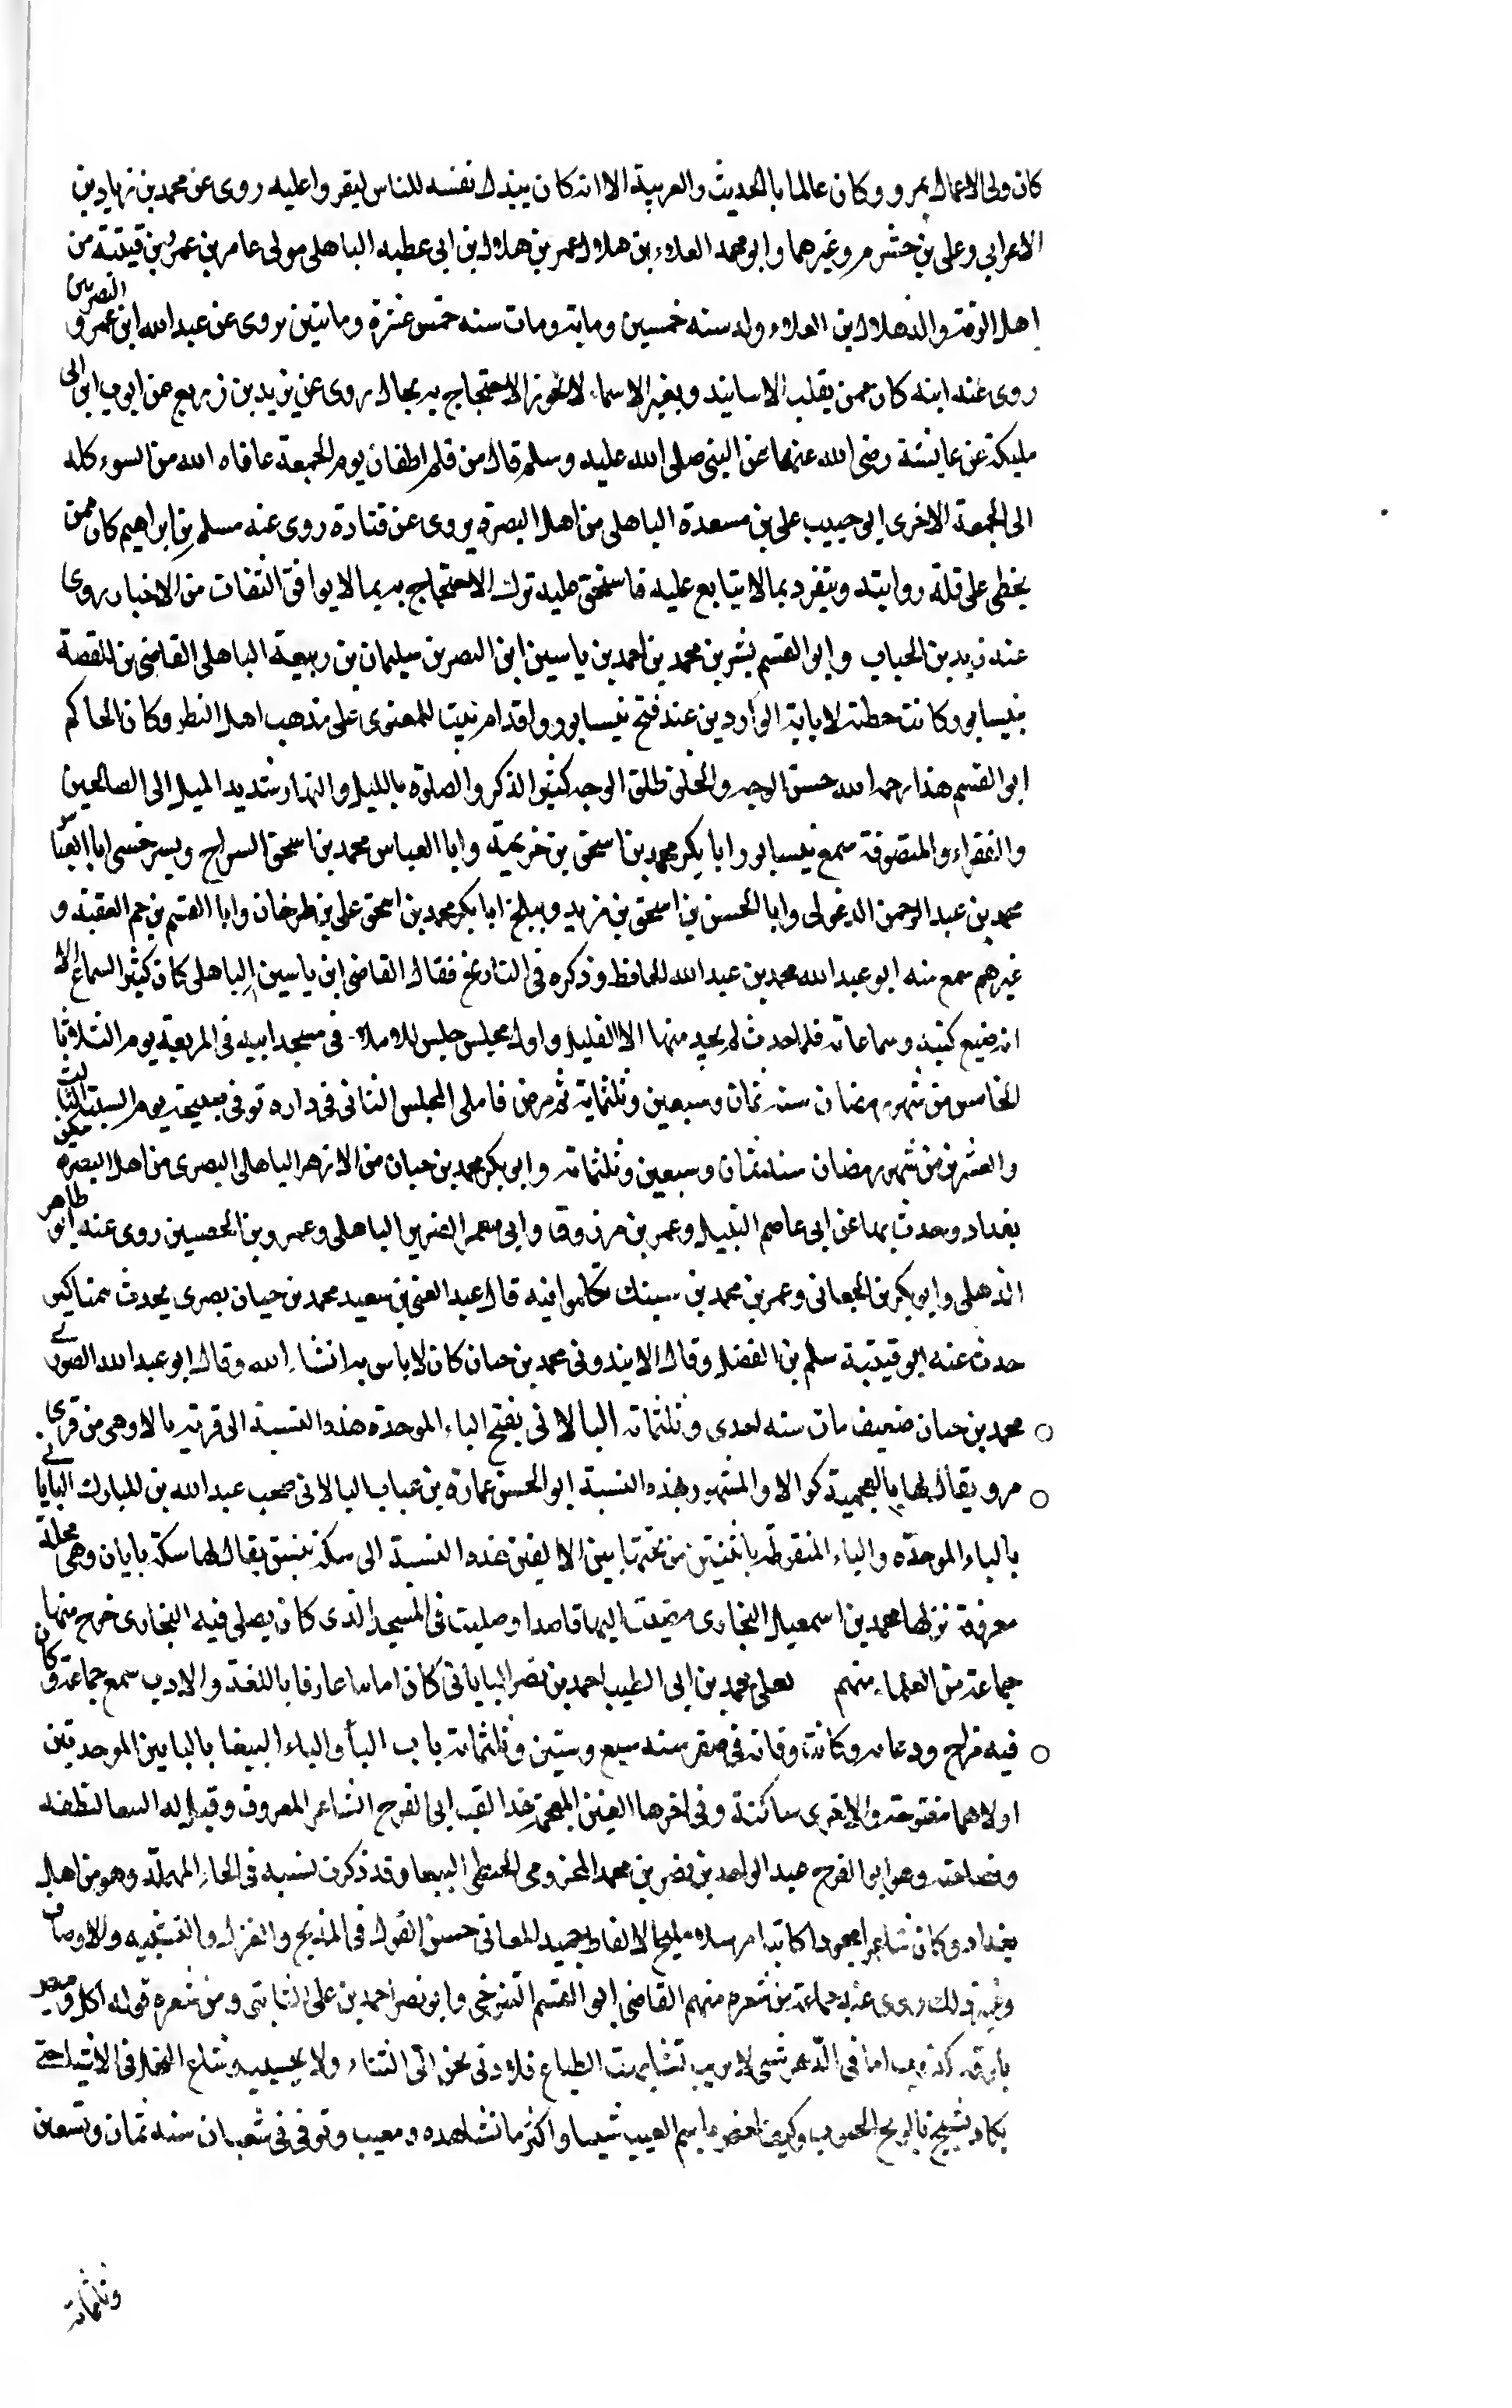 كان ولى الاعمال بمرو وكان عالما بالحديث والعربية الا انه كان يبذل نفسه للناس ليقروا عليه روى عن محمد بن زياد بن
الاعرابي وعلى بن خشرم وغيرهما وابو محمد العلاء بن هلال بن عمر بن هلال ابن ابى عطيه الباهلى مولى عامر بن عمرو بن قيتبة من
اهل الرقة والد هلال ابن العلاء ولد سنه خمسين ومايه ومات سنه خمس عشرة ومايتين يروى عن عبد الله ابن عمرو
روى عنه ابنه كان ممن يقلب الاسانيد ويغير الاسماء لا يجوز الاحتجاج به بحال روى عن يزيد بن زريع عن ايوب ابن ابى
مليكة عن عايشة رضى الله عنها عن النبى صلى الله عليه وسلم قال من قلم اظفاره يوم الجمعة عافاه الله من السوء كله
الى الجمعة الاخرى ابو حبيب على بن مسعدة الباهلى من اهل البصرة يروى عن قتادة روى عنه مسلم بن ابراهيم كان ممن
يخطى على قلة روايته ويتفرد بما لا يتابع عليه فاستحق عليه ترك الاحتجاج به بما لا يوافق الثقات من الاخبار روى
عنه زيد بن الحباب وابو القسم بشر بن محمد بن احمد بن ياسين ابن النصر بن سليمان بن ربيعة الباهلى القاضى من
بنيسابور وكانت خطته لابايه الواردين عند فتح نيسابور على مذهب اهل النظر وكان الحاكم
ابو القسم هذا رحمه الله حسن الوجه والخلق طلق الوجه كثير الذكر والصلوة بالليل والنهار شديد الميل الى الصالحين
والفقراء والمتصوفة سمع بنيسابور ابا بكر محمد بن اسحق بن خزيمة وابا العباس محمد بن اسحق السراج وبسرخس ابا العباس
محمد بن عبد الرحمن الدغولى وابا الحسن بن اسحق بن مزيد وببلخ ابا بكر محمد بن اسحق على بن طرخان وابا القسم بن حم الفقيه و
غيرهم سمع منه ابو عبد الله محمد بن عبد الله الحافظ وذكره فى التاريخ فقال القاضى ابن ياسين الباهلى كان كثير السماع الا
انه ضيع كتبه وسماعاته فلما حدث لم يجد منها الا القليل واول مجلس جلس للاملاء فى مسجد ابيه فى المربعة يوم الثلاثا
الخامس من شهر رمضان سنه ثمان وسبعين وثلثماية ثم مرض فاملى المجلس الثانى فى داره توفى صبيحة يوم السبت الثالث
والعشرين من شهر رمضان سنه ثمان وسبعين وثلثمايه وابو بكر محمد بن حبان من الازهر الباهلى البصرى من اهل البصرة سكن
بغداد وحدث بها عن ابى عاصم النبيل وعمر بن مرزوق وابى معمر الضرير الباهلى وعمرو بن الحصين روى عنه ابو طاهر
الذهلى وابو بكر بن الجعانى وعمر بن محمد بن سبنك تكلموا فيه قال عبد الغنى بن سعيد محمد بن حبان بصرى يحدث بمناكير
حدث عنه ابو قيتبة سلم بن الفضل وقال الايندونى محمد بن حبان كان لا باس به انشاء الله وقال ابو عبد الله الصورى
محمد بن حبان ضعيف مات سنه احدى وثلثمايه البالانى بفتح الباء الموحدة هذه النسبة الى قرية بالا وهى من قرى
مرو يقال لها بالعجمية كوالا والمشهور بهذه النسبة ابو الحسن عمارة بن عتاب البالانى صحب عبد الله بن المبارك البايانى
بالباء الموحدة والياء المنقوطه باثنتين من تحتها بين الالفين هذه النسبة الى سكة بنسف يقال لها سكة بايان وهى محلة
معروفة نزلها محمد بن اسمعيل البخارى مضيت اليها قاصدا وصليت فى المسجد الذى كان يصلى فيه البخارى خرج منها
جماعة من العلماء منهم يعلى محمد بن ابى الطيب احمد بن نصر البايانى كان اماما عارفا باللغة والادب سمع جماعة وكان
فيه مزاح ودعابه وكانت وفاته فى صفر سنه سبع وستين وثلثمايه باب البا والباء الببغا بالبايين الموحدتين
اولاهما مفتوحة والاخرى ساكنة وفى اخرها الغين المعجمة هذا لقب ابى الفرج الشاعر المعروف وقيل له الببغا
وفصاحته وهو ابو الفرج عبد الواحد بن نصر بن محمد المخزومى الحنطبى الببغا وقد ذكرت نسبه فى الحاء المهملة وهو من اهل
بغداد وكان شاعرا مجودا كاتبا مرسلا مليح الالفاظ جيد المعانى حسن القول فى المديح والغزل والتشبيه والاوصاف
وغير ذلك روى عنه جماعة من شعره منهم القاضى ابو القسم التنوخى وابو نصر احمد بن على الثابتى ومن شعره قوله اكل وميض
بارقه كذوب اما فى الدهر شى لا يريب تشابهت الطباع فلا دنى يحن الى الثناء ولا حسيب وشاع البخل فى الاشياء حتى
يكاد يشح بالريح الهبوب وكيف اخص باسم العيب شيا واكثر ما نشاهده معيب وتوفى فى شعبان سنه ثمان وتسعين
وثلثمايه